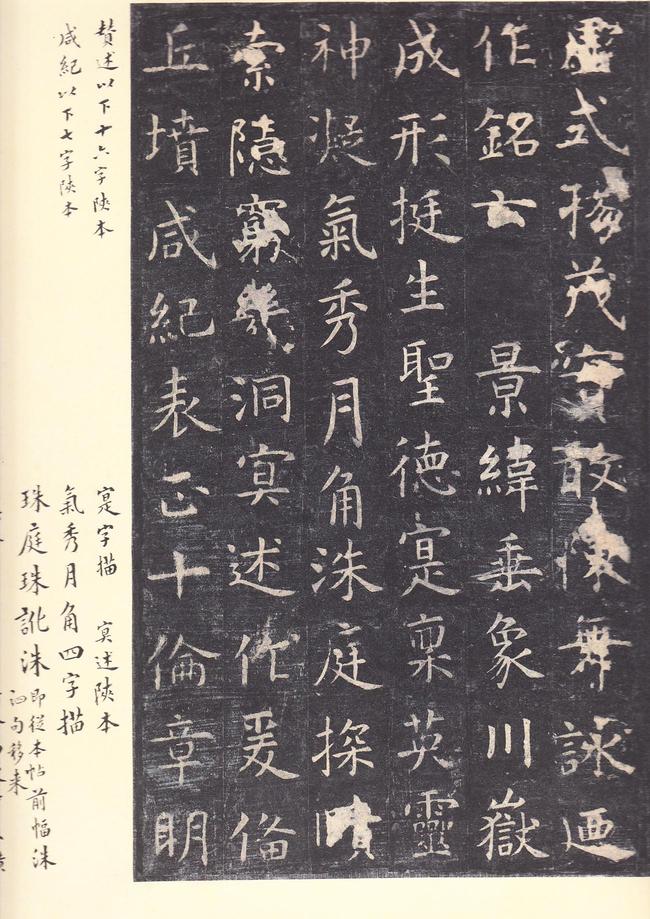 虛式揚茂實敢陳舞詠迺
作銘云 景緯垂象川嶽
成形挺生聖德寔稟英靈
神凝氣秀月角洙庭探賾
索隱窮幾洞冥述作爰俻
丘墳咸紀表正十倫章明
賛述以下十六字陝本
咸紀以下七字陝本
寔字描 冥述陝本
氣秀月角四字描
珠庭珠訛洙
即從本帖前幅洙
泗句移来